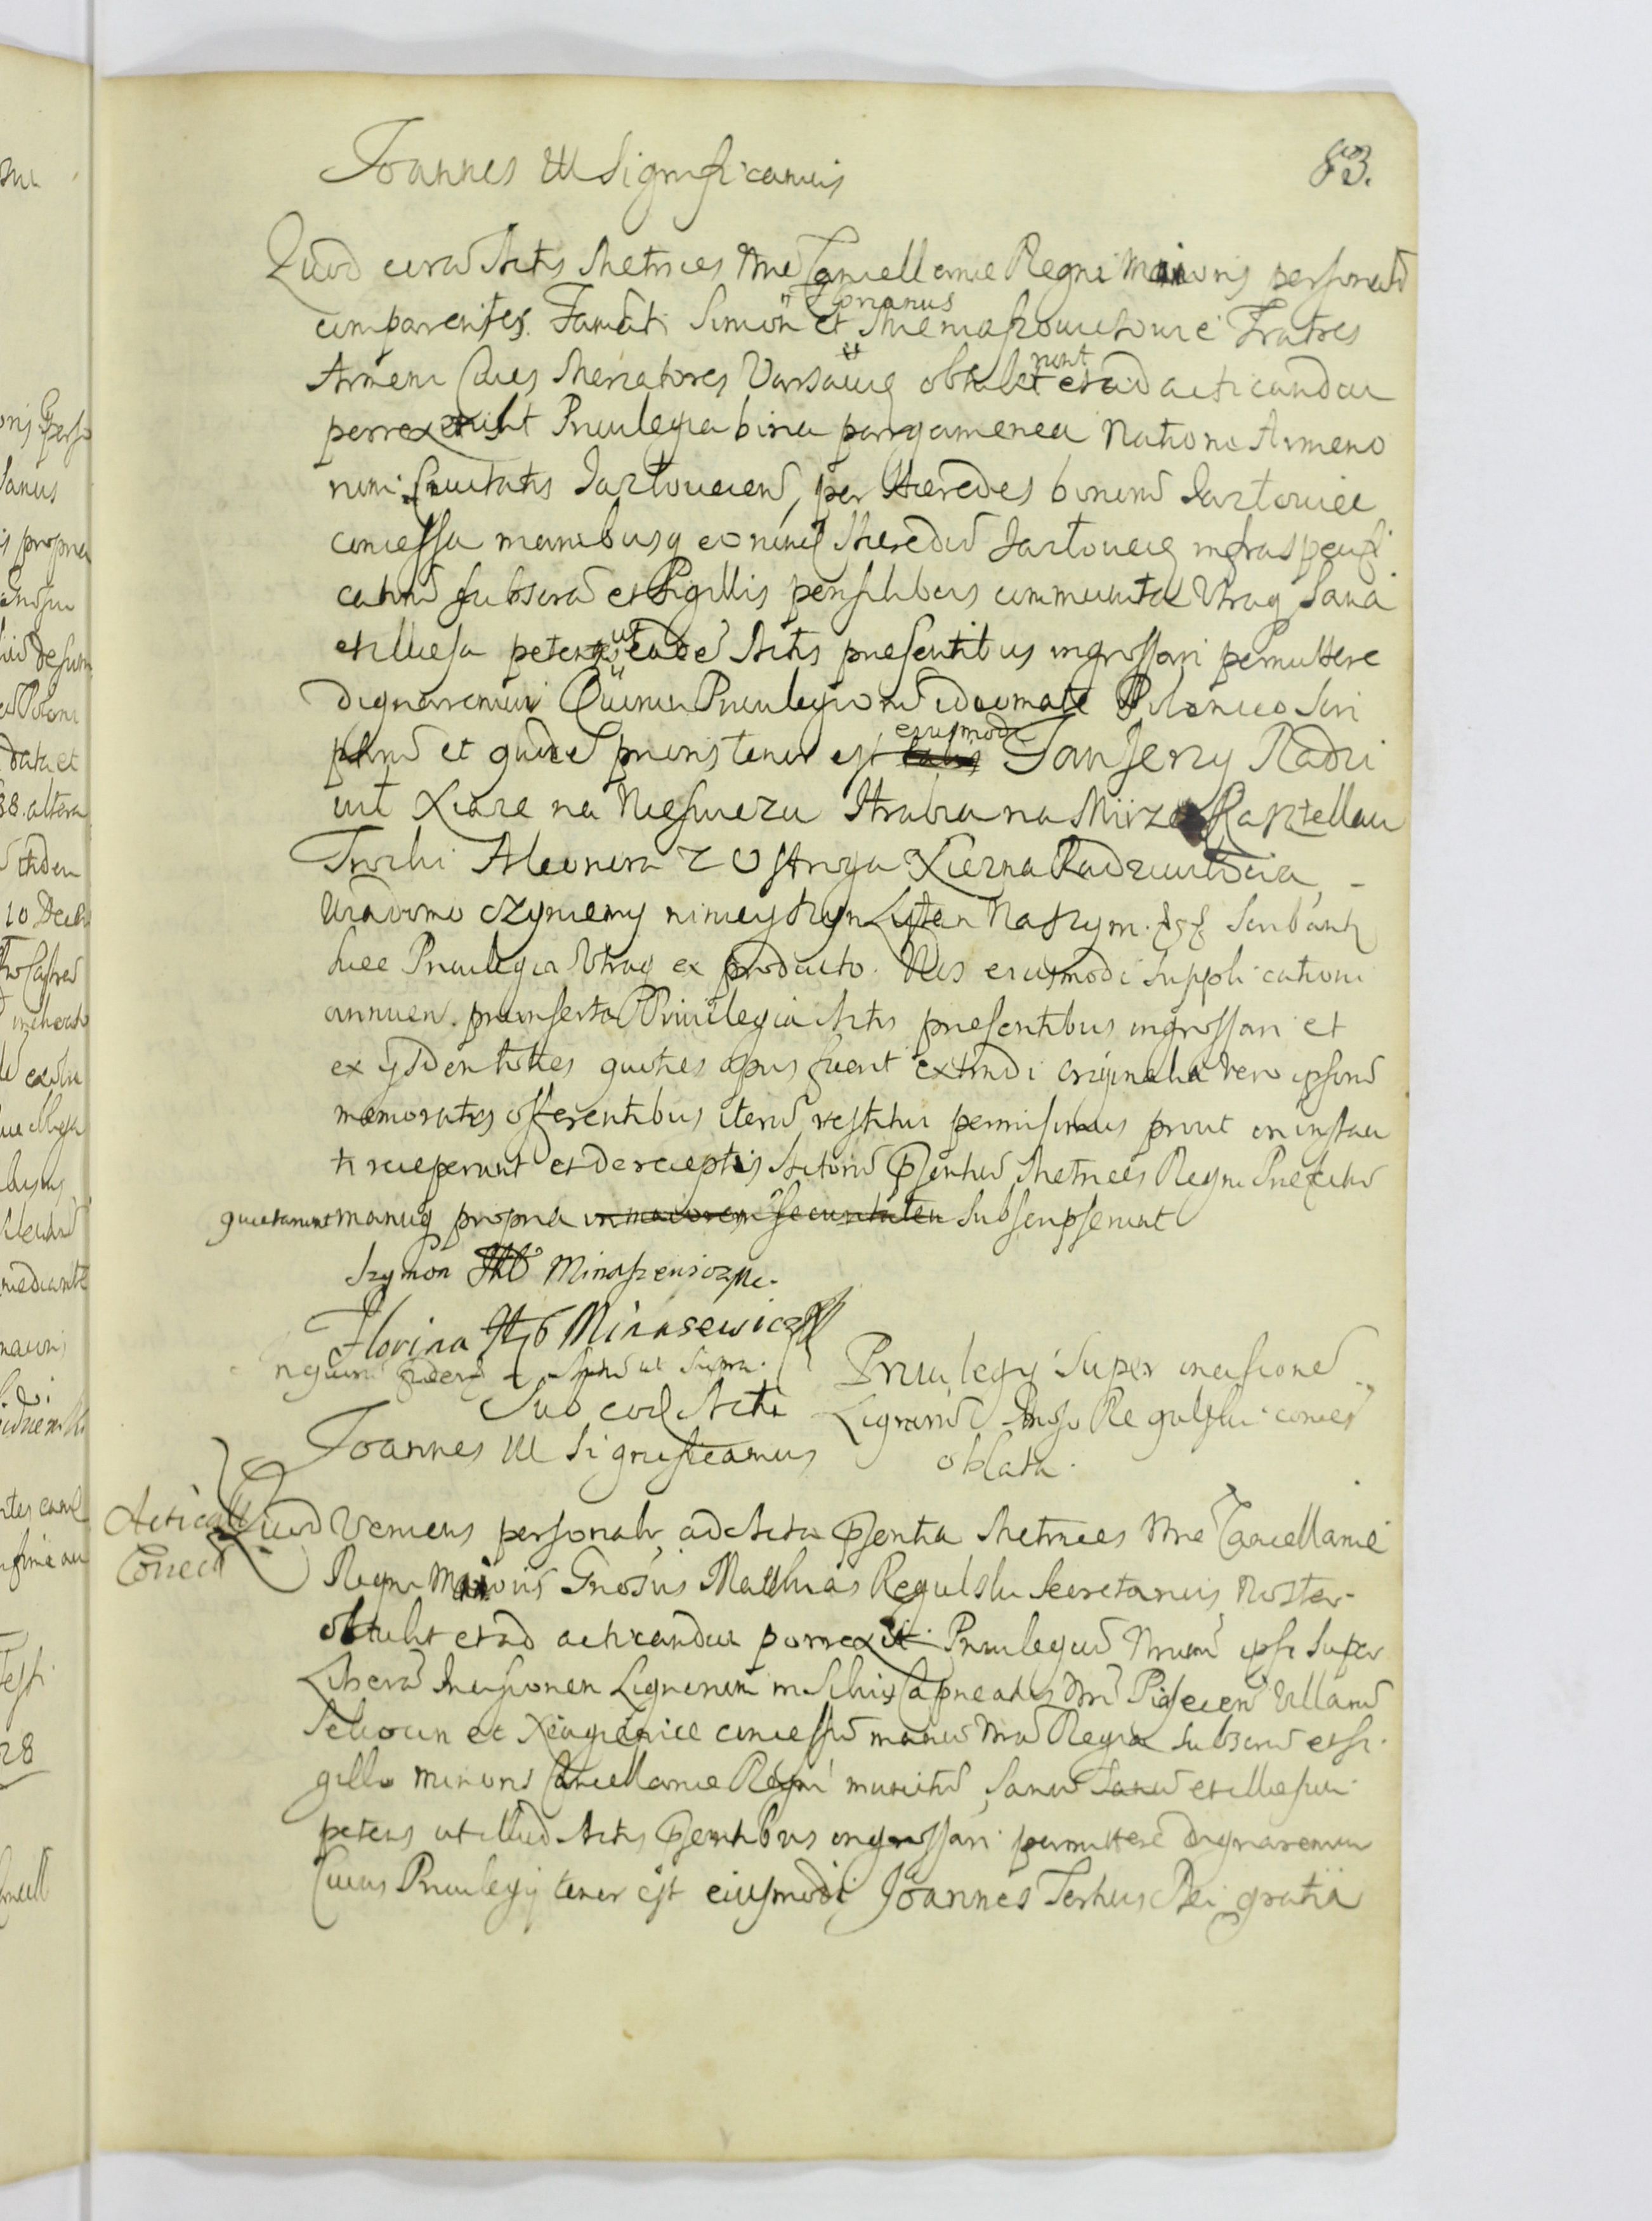 83.
Joannes III Significamus
Quod coram Actis Metrices Nrae Cancellariae Regni Maioris personalr
comparentes Famati Simon et Florianus Minaszowiczowie Fratres
Armeni Cives Mercatores Varsaviae obtulerunt et ad acticandum
porrexerunt Privilegia bina pargamenea Nationi Armeno
rum Civitatis Jazlovecen, per Haeredes bonorum Jazlowiec
concessa manibusq eorund Haeredum Jazloviec infraspecifi
catorum subscrà et Sigillis pensilibus communita Utraq Sana
et illaesa petentes ut eade Actis praesentibus ingrossari permittere
dignaremur Quorum Privilegiorum idiomate Polonico scri
ptorum et quidem prioris tenor est ejusmodi Jan Jerzy Radzi
wił Xiąze na Nieswiezu Hrabia na Mirze Kasztellan
Trocki Aleonora z Ostroga Xiezna Radziwiłowa,
Wiadomo czyniemy ninieyszym Listem Naszym. Scribantr
haec Privilegia Utraq ex producto. Nos eiusmodi supplicationi
annuen. praeinserta Privilegia Actis praesentibus ingrossari et
ex ijsdem toties quoties opus fuerit extradi originalia vero ipsorum
memoratis offerentibus iterum restitui permisimus prout in instan
ti receperunt et de receptis Actorum psentium Metrices Regni Praefectum
quietarunt manuq propria in maiorem securitatem subscripserunt
Szymon Minaszewicz
Floriian Minasewicz
Actum ut Supra.
Sub eod Actu
Privilegij Super incisione
Lignorum Gnoso Regulski conces
oblata.
Joannes III Significamus
Acticatt
Correct
Quod Veniens personalr ad Acta psentia Metrices Nrae Cancellariae
Regni Maioris Gnosus Matthias Regulski Secretarius Noster
obtulit et ad acticandum porrexit Privilegium Nrum ipsi super
Liberam Incisionem Lignorum in Silvis Capineatis Nri Villarum
Sekocin et concessum manu Nra Regia subscrum et si
gillo minoris Cancellariae Regni munitum, sanum Sanum et illaesum
petens ut illud Actis psentibus ingrossari permittere dignaremur
Cuius Privilegij tenor est eiusmodi Joannes Tertius Dei gratia